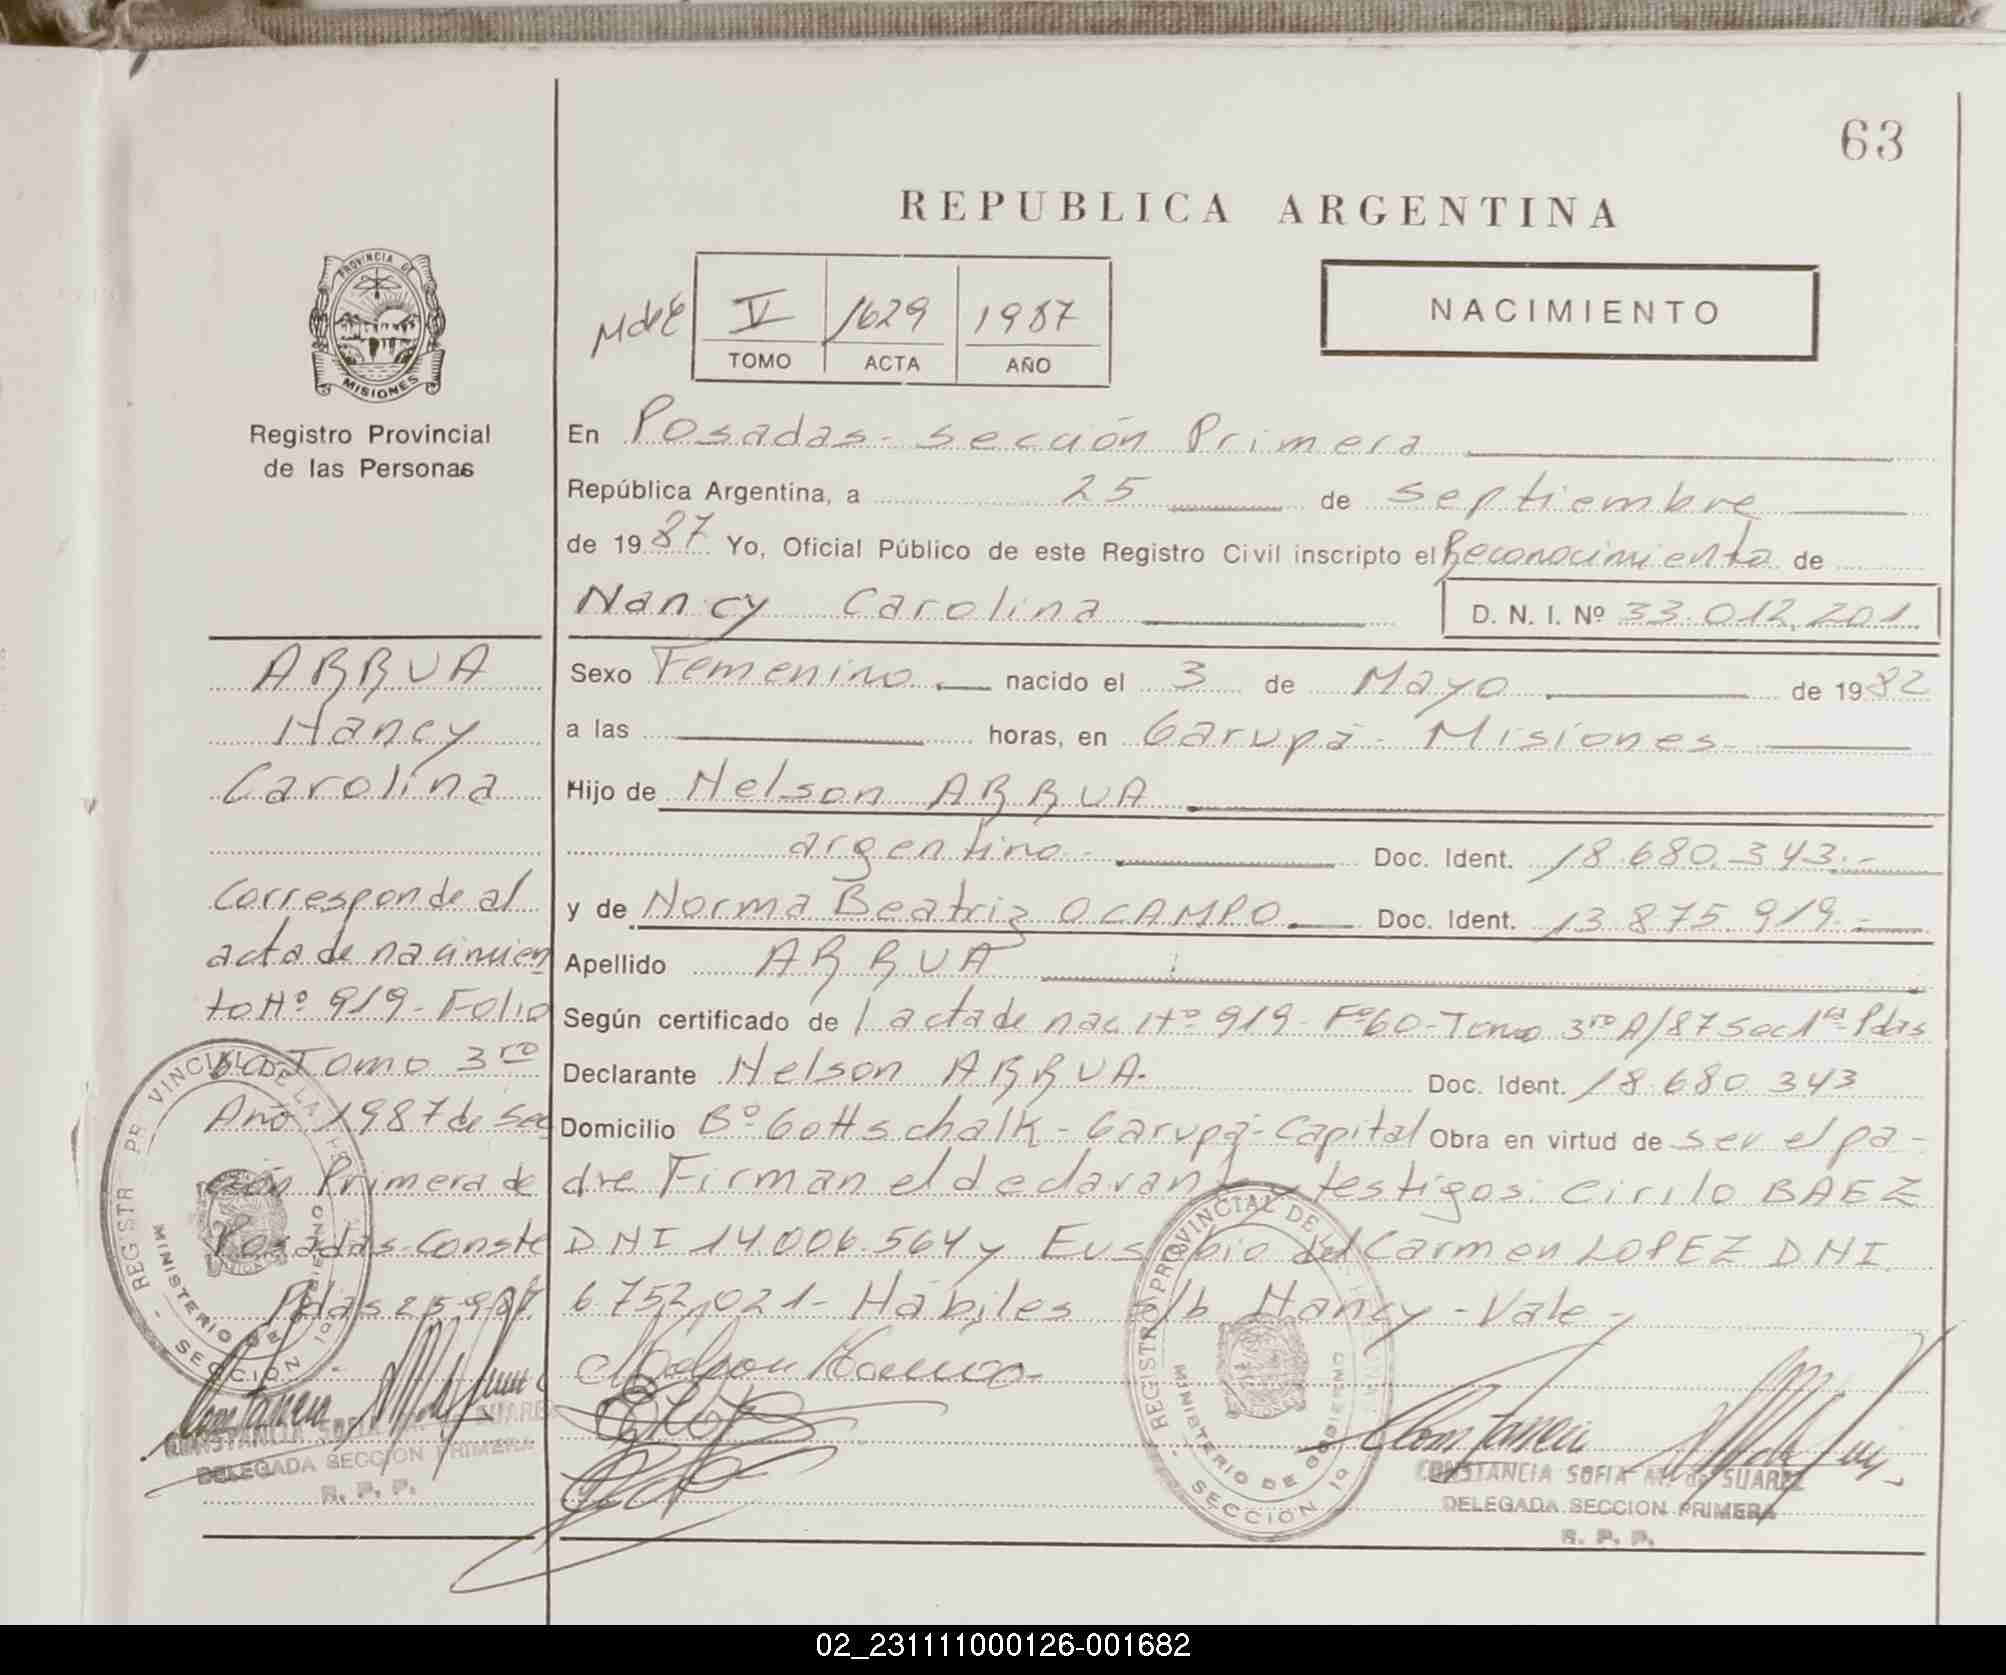 63
REPUBLICA ARGENTINA
PROVINCIA DE
MISIONES
Registro Provincial
de las Personas
V 1629 1987
TOMO ACTA AÑO
NACIMIENTO
En Posadas - sección Primera
República Argentina, a 25 de septiembre
de 1987 Yo, Oficial Público de este Registro Civil inscripto el Reconocimiento de
Nancy Carolina D. N. I. Nº 33.012.201
Sexo Femenino. nacido el 3 de Mayo de 1982
a las horas, en Garupá - Misiones
Hijo de Nelson ARRUA
argentino - Doc. Ident. 18.680.343.-
y de Norma Beatriz OCAMPO. Doc. Ident. 13.875.919.-
Apellido ARRUA
Según certificado de l acta de nac Nº 919 - Fº 60 - Tomo 3ro A/87 Sec 1ra Pdas
Declarante Nelson ARRUA. Doc. Ident. 18.680.343
Domicilio Bº Gottschalk - Garupá - Capital Obra en virtud de ser el pa-
dre Firman el declarante y testigos: Cirilo BAEZ
DNI 14.006.564 y Eusebio del Carmen LOPEZ DNI
6.752.021 - Hábiles s/b Nancy - Vale -
ARRUA
Nancy
Carolina
Corresponde al
acta de nacimien
to Nº 919 - Folio
60 Tomo 3ro
Año 1987 de Sec
ción Primera de
Posadas - Conste
Pdas 25-9-87.
REGISTRO PROVINCIAL DE LAS
MINISTERIO DE GOBIERNO
SECCION 1a
CONSTANCIA SOFIA SUAREZ
DELEGADA SECCION PRIMERA
R. P. P.
REGISTRO PROVINCIAL DE
MINISTERIO DE GOBIERNO
SECCION 1a
CONSTANCIA SOFIA M. de SUAREZ
DELEGADA SECCION PRIMERA
R. P. P.
02_231111000126-001682